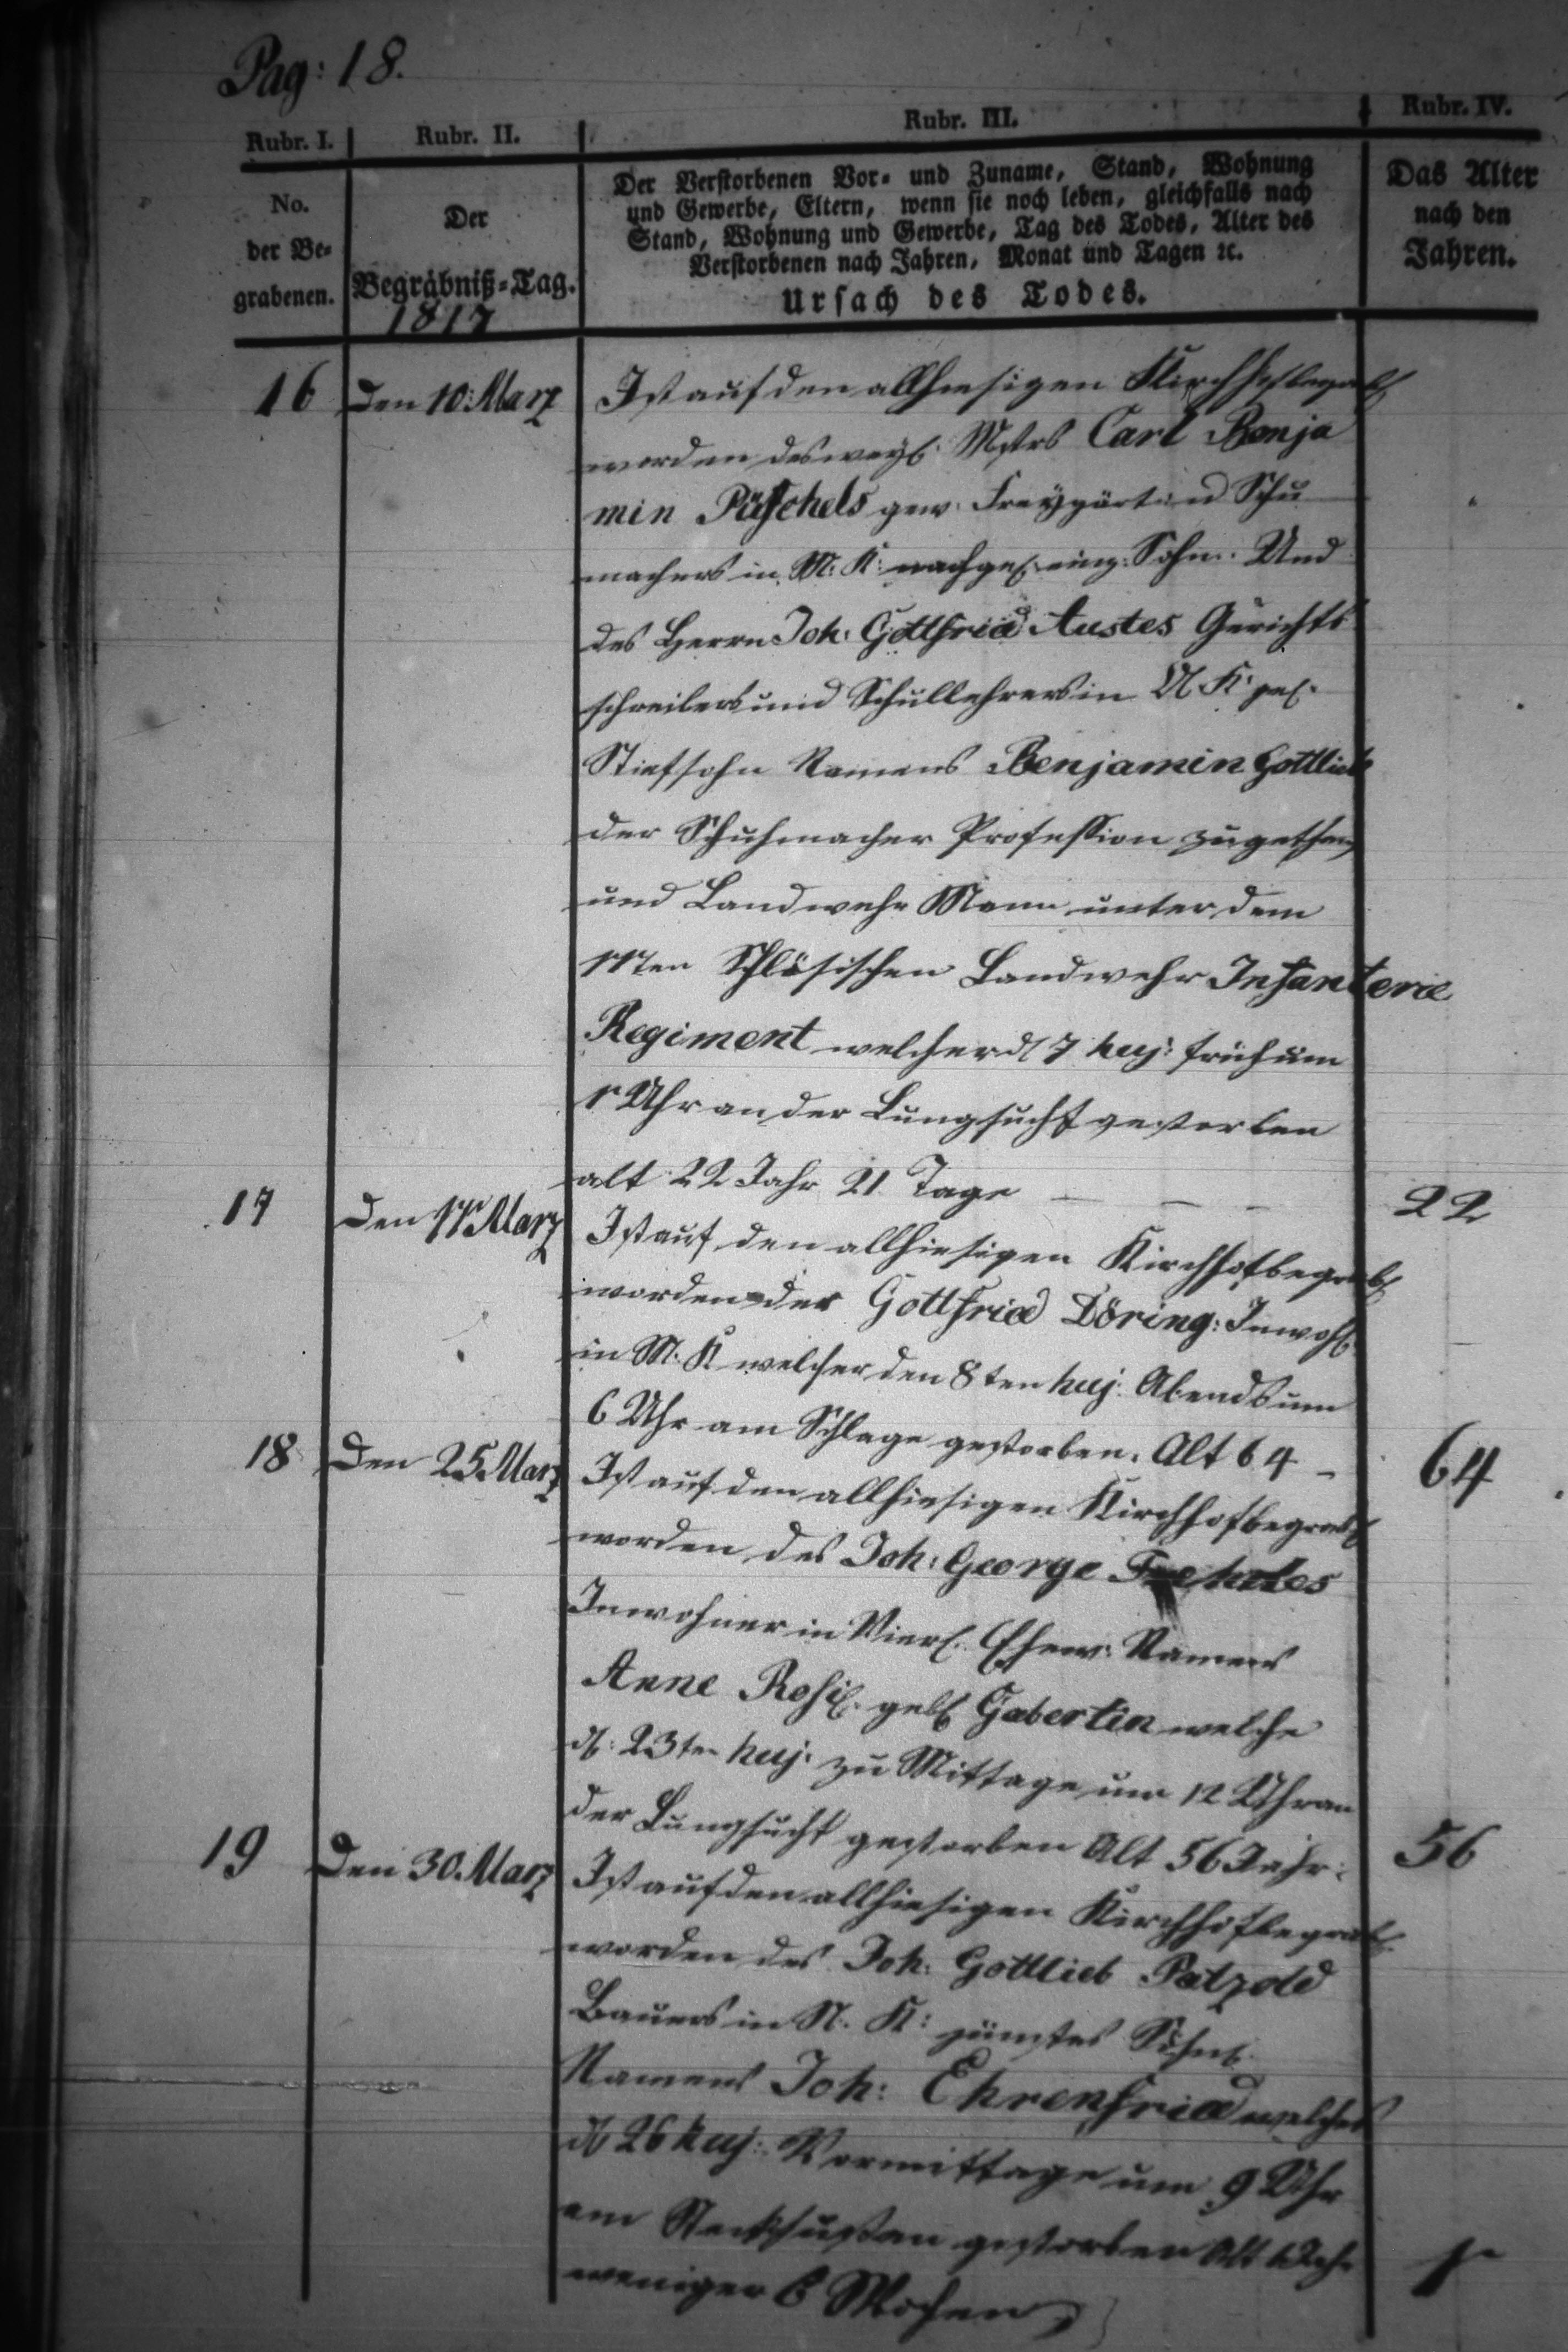 Pag: 18.
Rubr. I. Rubr. II. Rubr. III. Rubr. IV.
No. der Be- grabenen.
Der Begräbniß-Tag. 1817
Der Verstorbenen Vor- und Zuname, Stand, Wohnung
und Gewerbe, Eltern, wenn sie noch leben, gleichfalls nach
Stand, Wohnung und Gewerbe, Tag des Todes, Alter des
Verstorbenen nach Jahren, Monat und Tagen ꝛc.
Ursach des Todes.
Das Alter
nach den
Jahren.
16 Den 10. Marz Ist auf den allhiesigen Kirchhof begrab
worden des weyl: Mstrs Carl Benja
min Püschels gew: Freygärt: und Schu
machers in M: K: nachgel: einz: Sohn. Und
des Herrn Joh: Gottfried Austes Gerichts
schreibers und Schullehrers in K:
Stiefsohn Namens Benjamin Gottlieb
der Schuhmacher Profession zugethan
und Landwehr Mann unter dem
11ten Schlesischen Landwehr Infanterie
Regiment welcher d 7 huj: früh um
1 Uhr an der Lungsucht gestorben
alt 22 Jahr 21 Tage — — — 22
17 Den 11 Marz Ist auf den allhiesigen Kirchhof begrab
worden der Gottfried Döring: Inwoh
in M: K welcher den 8ten huj: Abends um
6 Uhr am Schlage gestorben. Alt 64 - 64
18 Den 25. Marz Ist auf den allhiesigen Kirchhof begrab
worden des Joh: George
Inwohner in Ehew: Namens
Anne Rosi: geb Gabertin welche
d: 23ten huj: zu Mittage um 12 Uhr an
der Lungsucht gestorben Alt 56 Jahr: 56
19 Den 30. Marz Ist auf den allhiesigen Kirchhof begrab
worden des Joh: Gottlieb Patzold
Bauers in N. K: jüngstes Söhnl:
Namens Joh: Ehrenfried welches
d 26 huj: Vormittage um 9 Uhr
am gestorben Alt 1 Jahr
weniger 6 Wochen 1